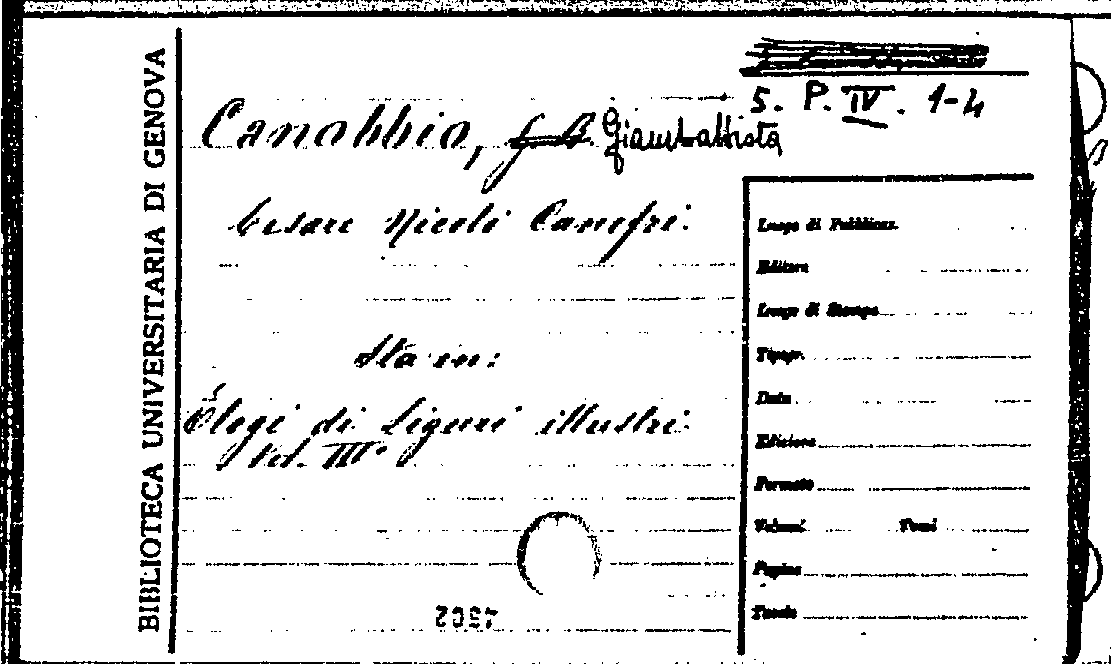 BIBLIOTECA UNIVERSITARIA DI GENOVA
5. P. IV. 1-4
Canobbio, G. B. Giambattista
Cesare Nicolò Canefri.
Sta in:
Elogi di Liguri illustri.
Vol. III°
Luogo di Pubblicaz.
Editore
Luogo di Stampa
Tipogr.
Data
Edizione
Formato
Volumi Tomi
Pagine
Tavole